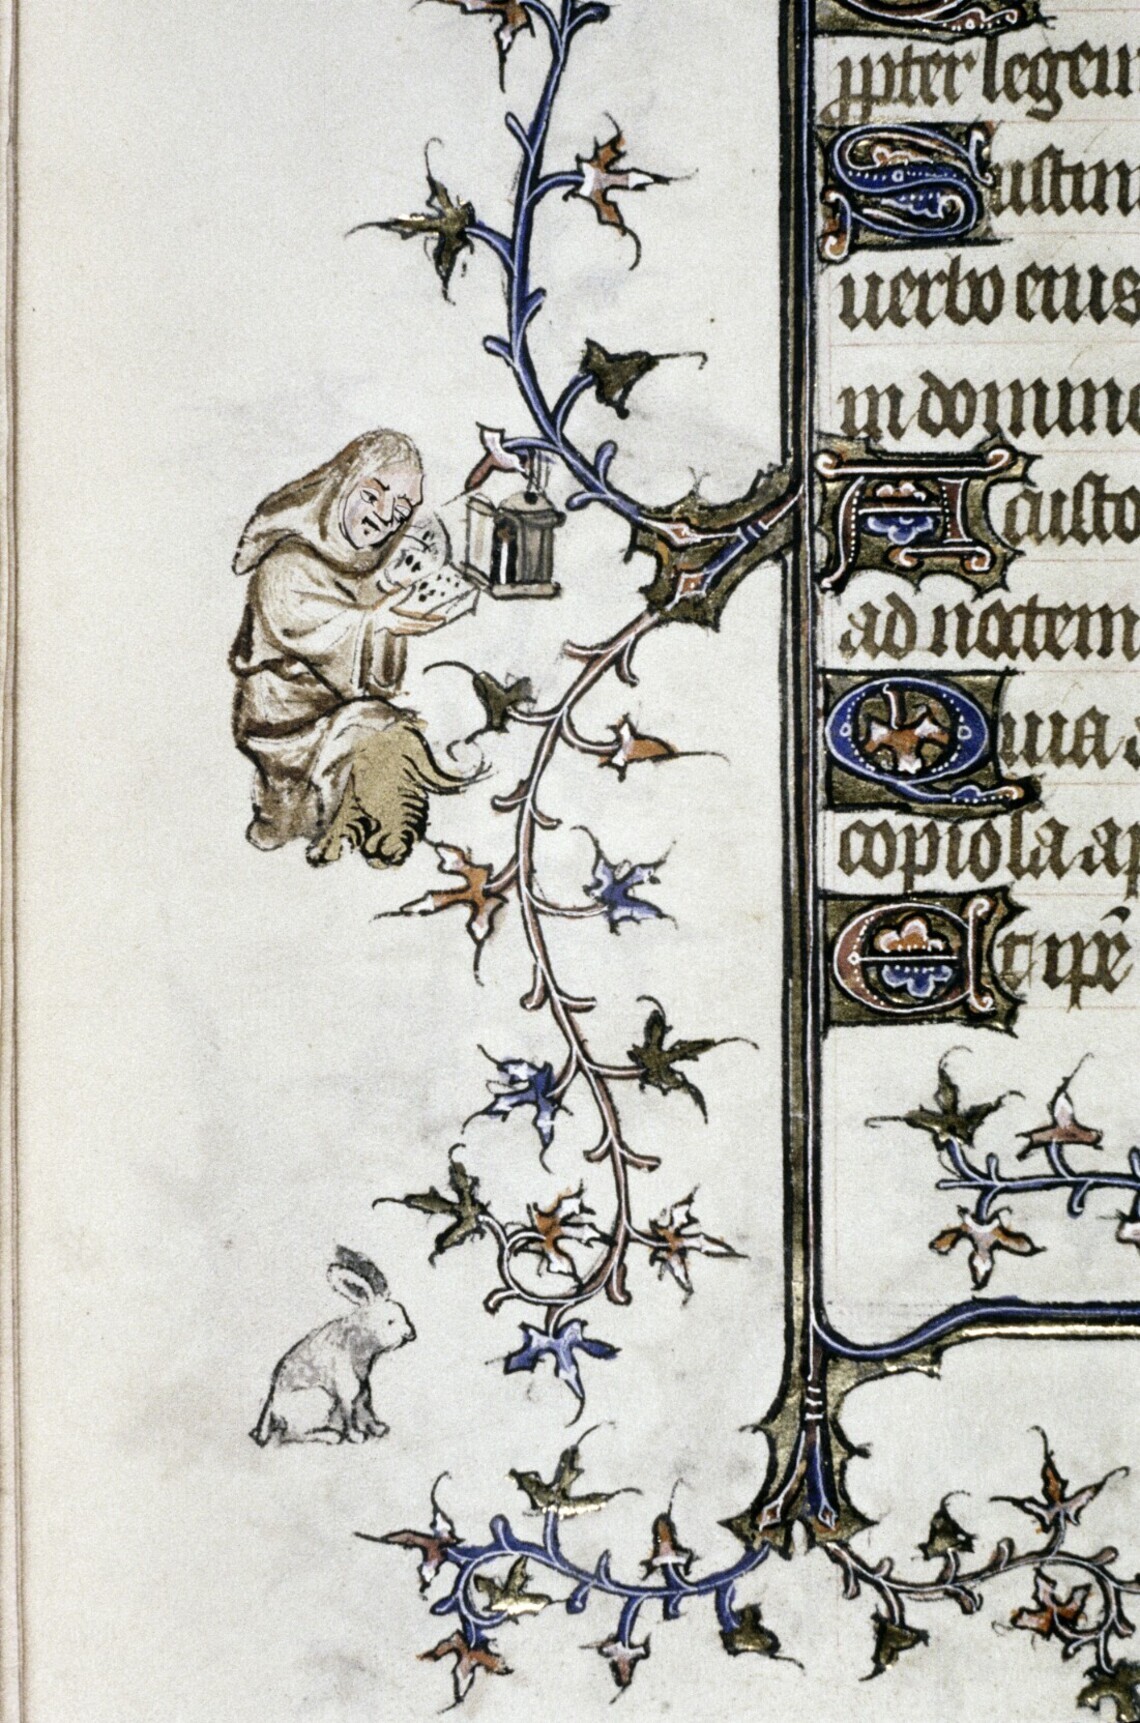 ppter legem
Sustin
uerbo eius
in domino
A custo
ad noctem
Quia a
copiosa ap
Et ip̄e